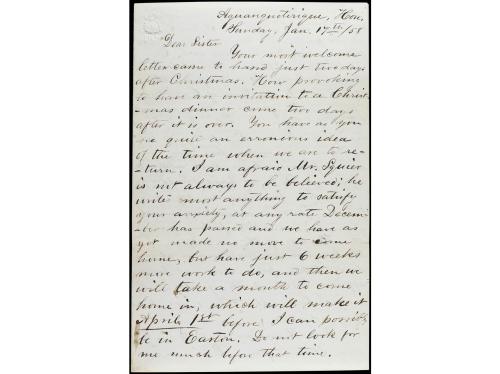 Aguanqueterique, Hon.
Sunday, Jan. 17th/58
Dear Sister
Your most welcome
letter came to hand just two days
after Christmas. How provoking
to have an invitation to a Christ-
-mas dinner come two days
after it is over. You have as you
me quite an erronious idea
of the time when we are to re-
-turn. I am afraid Mr. Squier
is not always to be believed; he
write most anything to satisfy
your anxiety, at any rate Decem-
-ber has passed and we have as
yet made no move to come
home, but have just 6 weeks
more work to do, and then we
will take a month to come
home in, which will make it
April 1st before I can possibly
be in Easton. Do not look for
me much before that time.